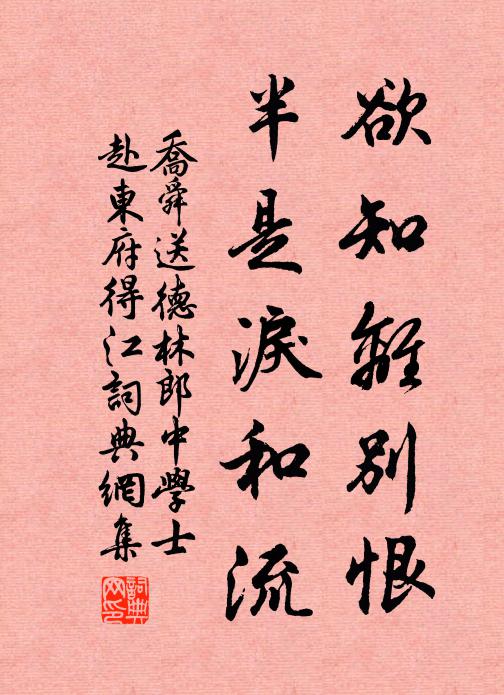 欲知離別恨
半是淚和流
喬舜送德林郎中學士
赴東府得江詞典網集
詞典
网印